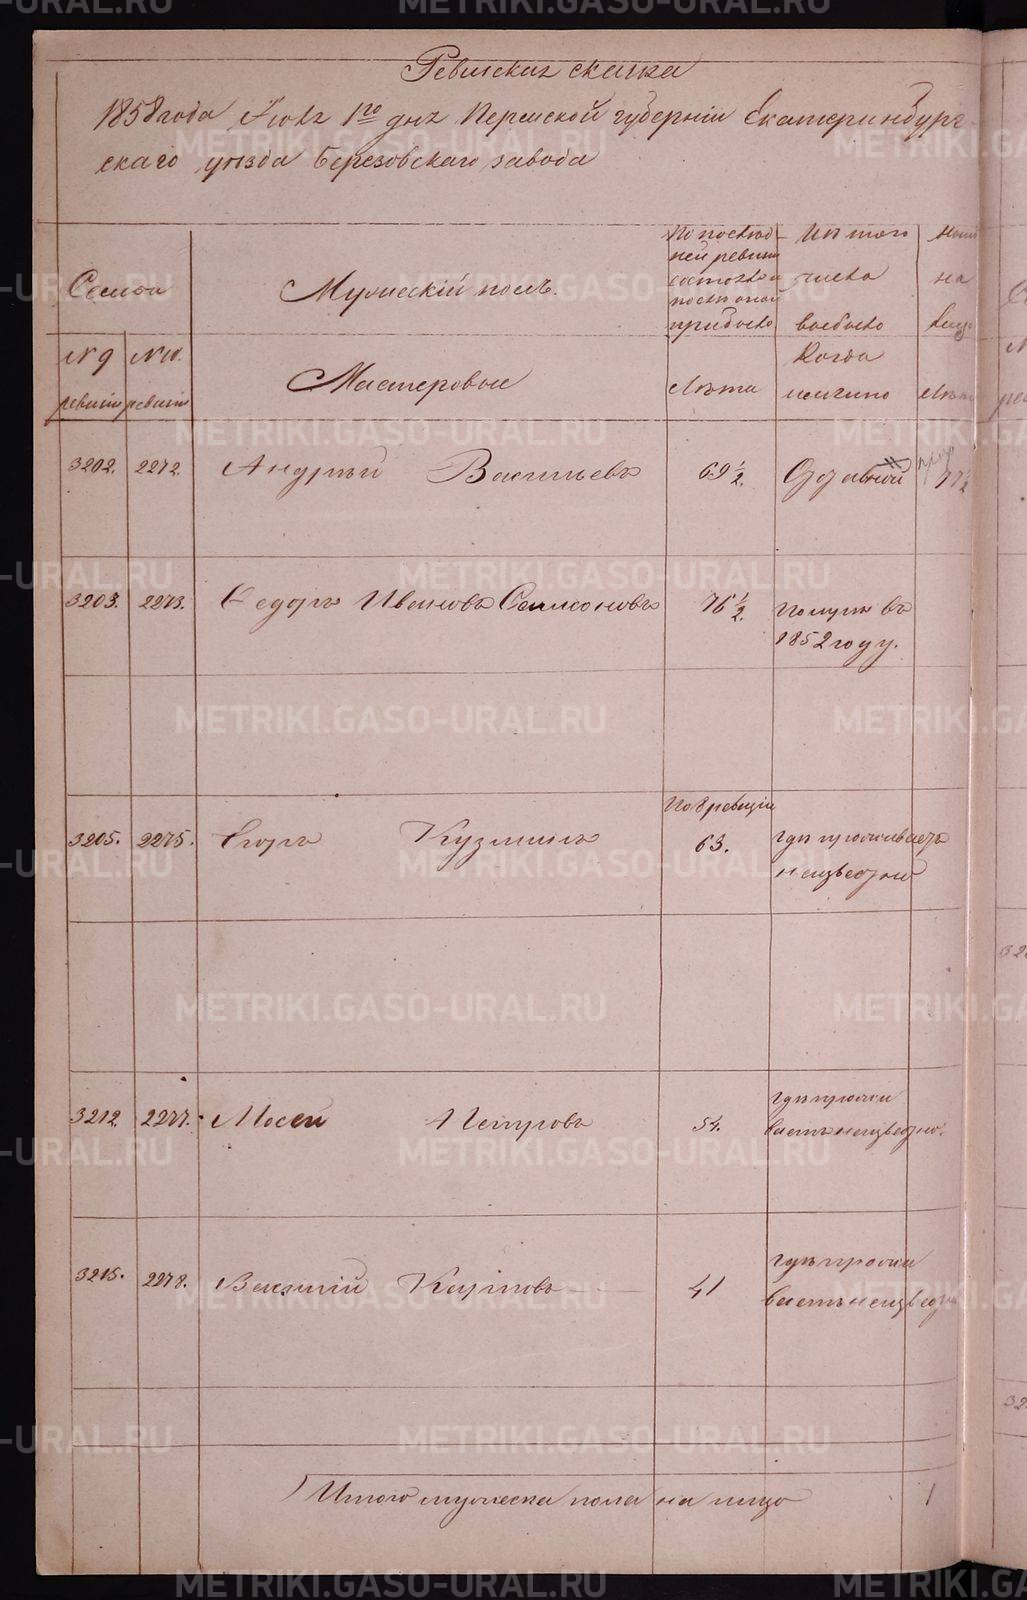 Ревизская сказка
1858 года Июля 1го дня Пермской губерніи Екатеринбург-
скаго уѣзда Березовскаго завода
Семьи
Мужескій полъ.
По послѣд-
ней ревизіи
состояло и
послѣ оной
прибыло
Изъ того
числа
выбыло
на
лицо
№ 9
ревизіи
№ 10.
ревизіи
Мастеровые
Лѣта
Когда
именно
Лѣта
3202. 2272. Андрей Васильевъ 69 1/2. Отставной 77 1/2
3203. 2273. Федоръ Ивановъ Самсоновъ 76 1/2. Померъ въ
1852 году.
По 8 ревизіи
3205. 2275. Егоръ Кузминъ 63. гдѣ проживаетъ
неизвестно
3212. 2277. Мосей Петровъ 54. гдѣ прожи
ваетъ неизвестно.
3215. 2278. Василій Карповъ 41 гдѣ прожи
ваетъ неизвестно
Итого мужеска пола на лицо 1
METRIKI.GASO-URAL.RU